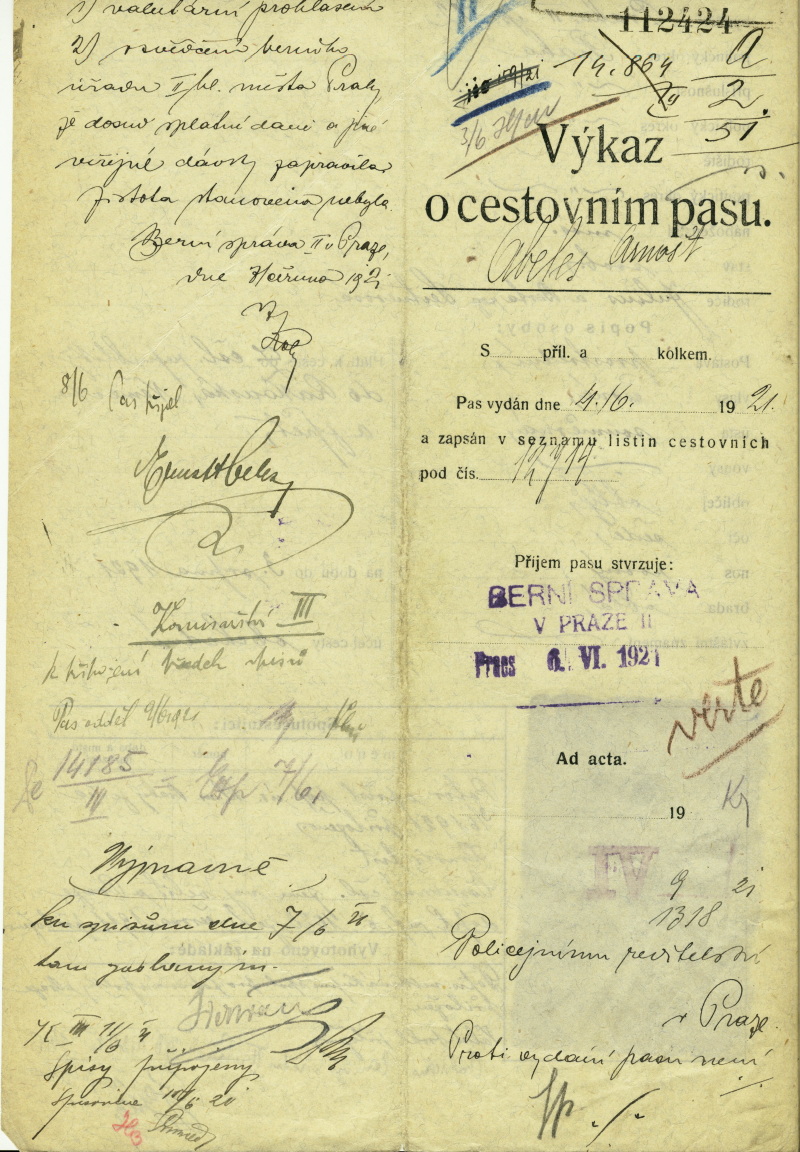 1) valutární prohlášení
2) osvědčení berního
úřadu II hl. města Prahy,
že dosud splatné daně a jiné
veřejné dávky zapravila
jistota stanovena nebyla.
Berní správa II v Praze,
dne 7 června 1921
8/6 Pas přijel
Ernst Abeles
2.
Komisařství III
k připojení všech spisů
Pas odděl
14185
III
7/6
Výjnavně
ku spisům dne 7/6 21
tam zaslaným.
K III 11/6 21
Spisy připojeny
10/6 21
112424
14.864
A
2.
51
3/6
Výkaz
o cestovním pasu.
Abeles Arnošt
S příl. a kolkem.
Pas vydán dne 4./6. 1921.
a zapsán v seznamu listin cestovních
pod čís. 12914
Příjem pasu stvrzuje:
BERNÍ SPRÁVA
V PRAZE II
Praes 6. VI. 1921
verte
Ad acta.
19
IV
9 21
1318
Policejnímu ředitelství
v Praze
Proti vydání pasu není